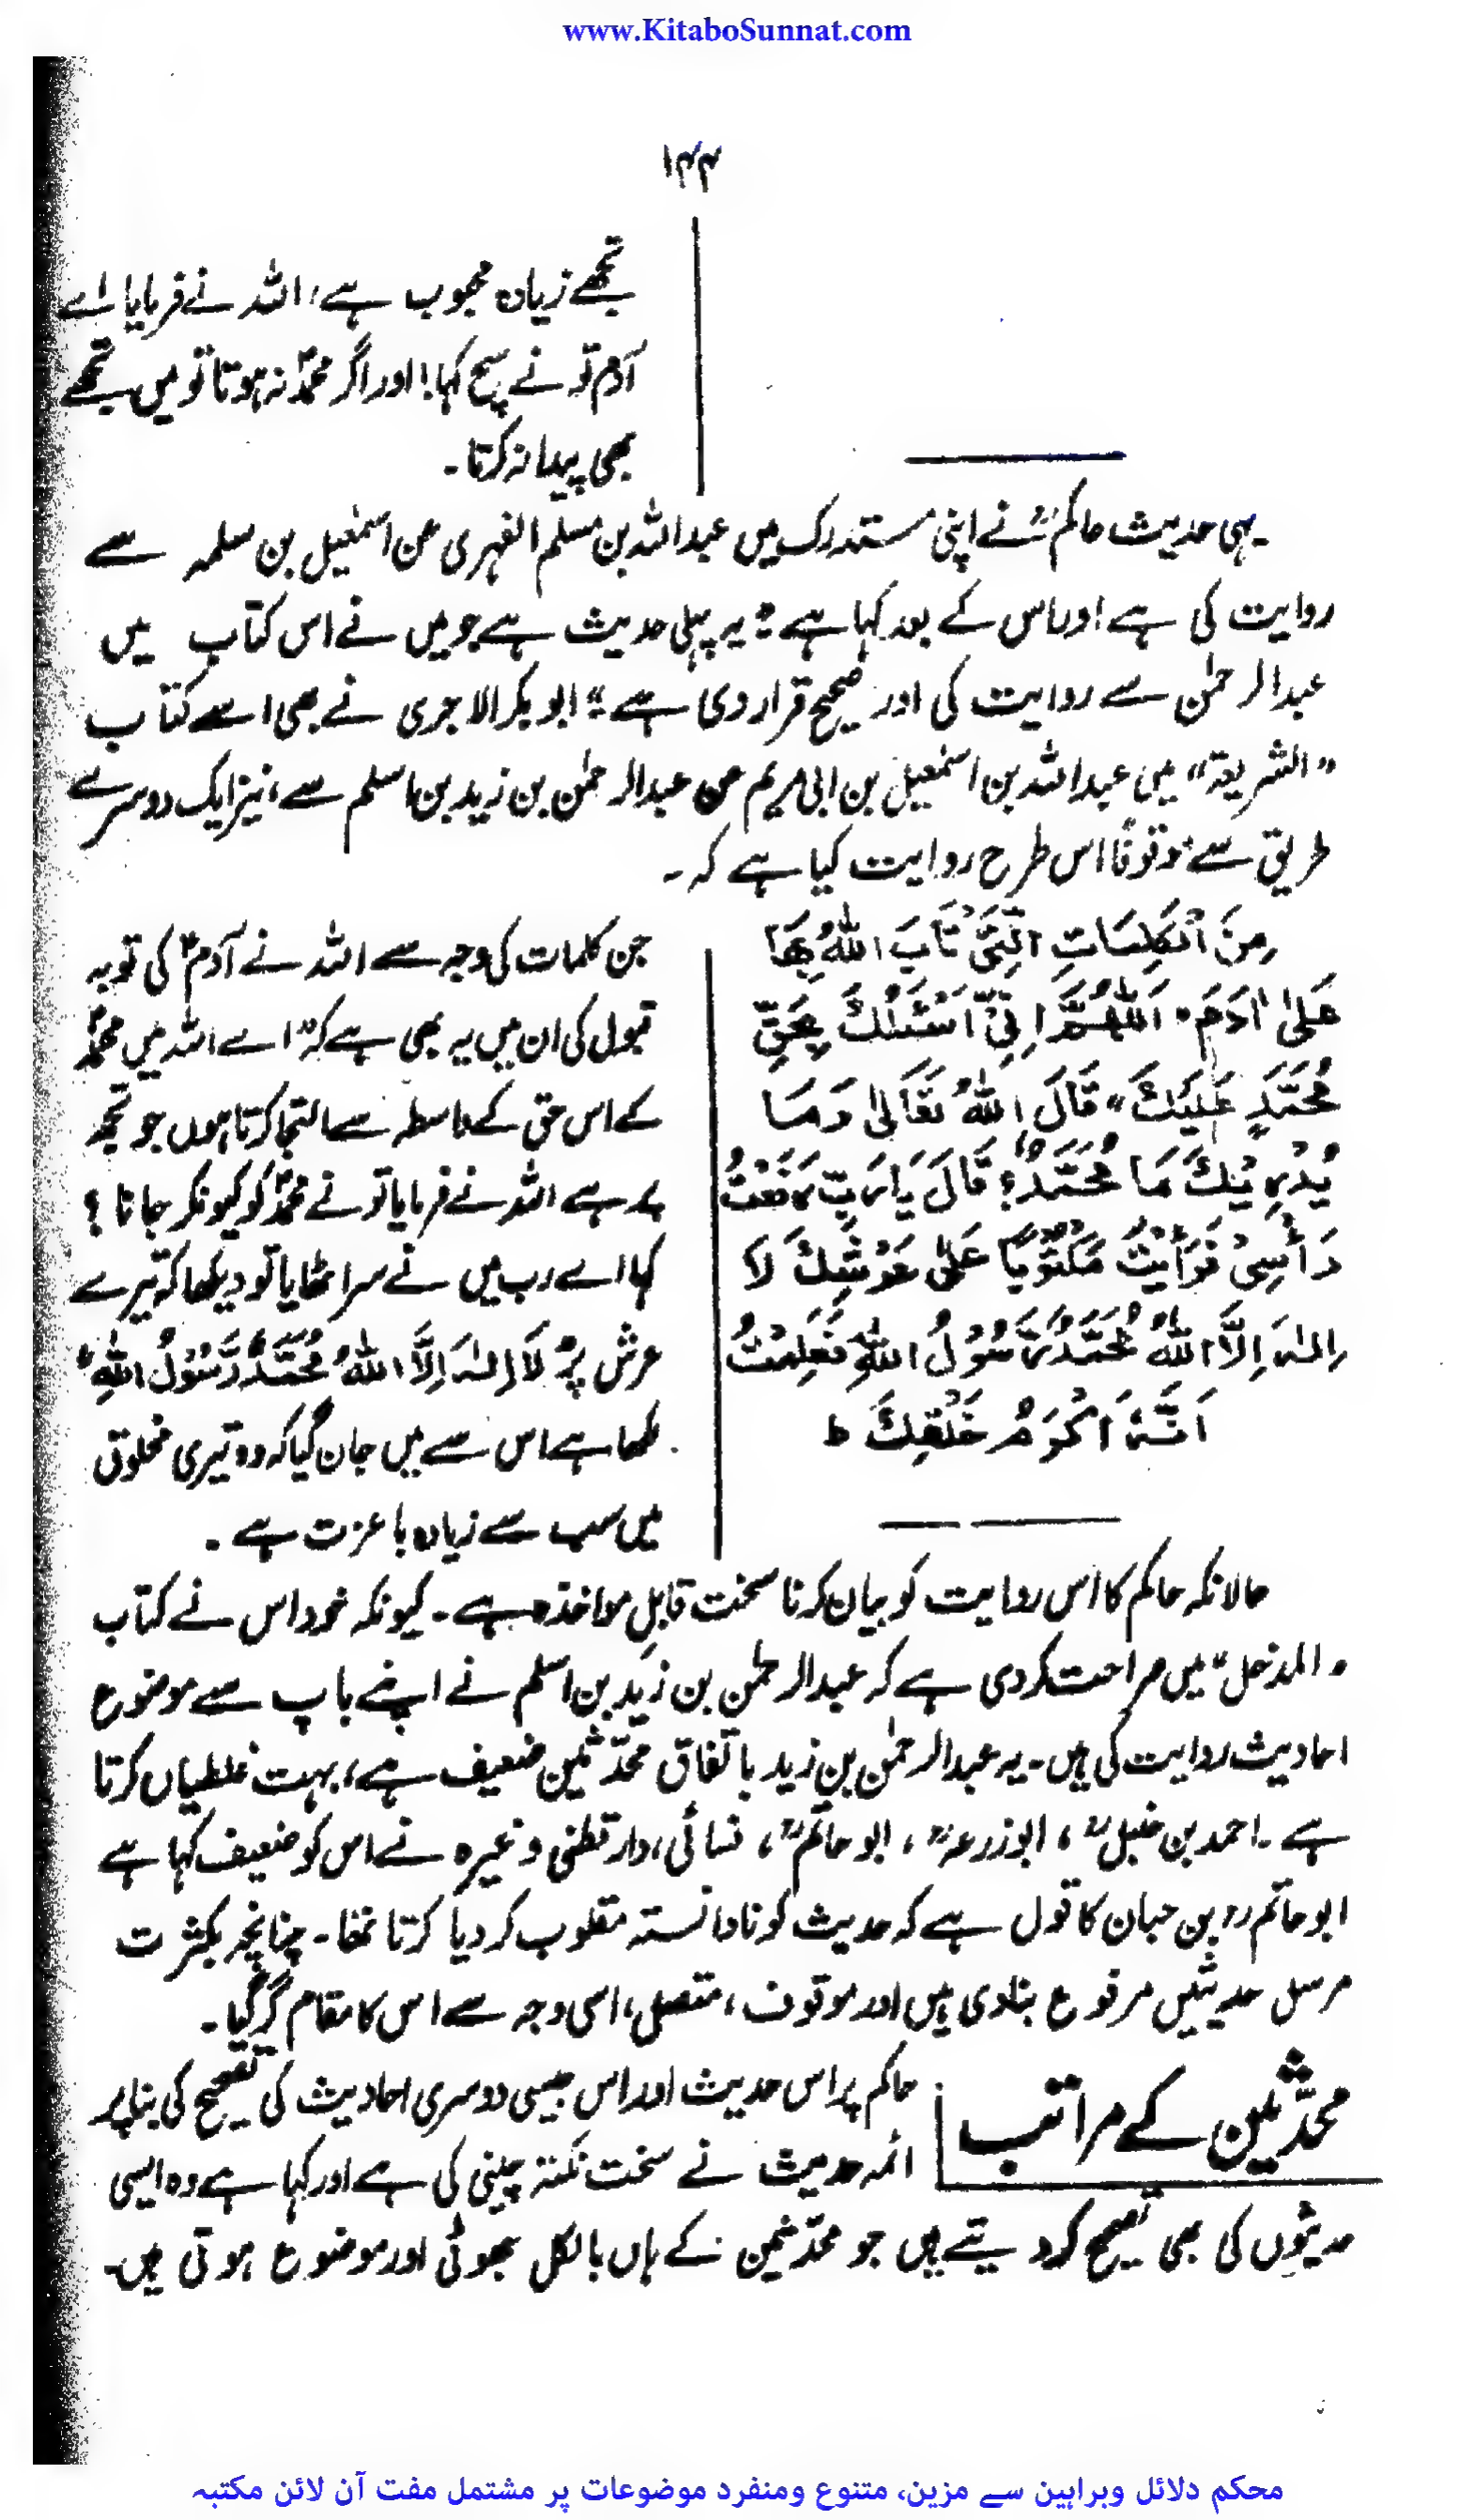 www.KitaboSunnat.com
۱۴۴
تجھے زیادہ محبوب ہے، اللہ نے فرمایا اے
آدم تو نے سچ کہا! اور اگر محمدؐ نہ ہوتا تو میں تجھے
بھی پیدا نہ کرتا۔
یہی حدیث حاکمؒ نے اپنی مستدرک میں عبداللہ بن مسلم الفہری عن اسمٰعیل بن سلمہ سے
روایت کی ہے اور اس کے بعد کہا ہے: "یہ پہلی حدیث ہے جو میں نے اس کتاب میں
عبدالرحمٰن سے روایت کی اور صحیح قرار دی ہے" ابوبکر الاجری نے بھی اسے کتاب
"الشریعۃ" میں عبداللہ بن اسمٰعیل بن ابی مریم عن عبدالرحمٰن بن زید بن اسلم سے، نیز ایک دوسرے
طریق سے موقوفًا اس طرح روایت کیا ہے کہ۔
مِنَ الْکَلِمَاتِ الَّتِیْ تَابَ اللّٰہُ بِھَا
عَلیٰ اٰدَمَ. اَللّٰھُمَّ اِنِّیْ اَسْئَلُکَ بِحَقِّ
مُحَمَّدٍ عَلَیْکَ" قَالَ اللّٰہُ تَعَالیٰ وَمَا
یُدْرِیْکَ مَا مُحَمَّدٌ؟ قَالَ یَا رَبِّ رَفَعْتُ
رَأْسِیْ فَرَأَیْتُ مَکْتُوْبًا عَلیٰ عَرْشِکَ لَا
اِلٰہَ اِلَّا اللّٰہُ مُحَمَّدٌ رَّسُوْلُ اللّٰہِ فَعَلِمْتُ
اَنَّہٗ اَکْرَمُ خَلْقِکَ ط
جن کلمات کی وجہ سے اللہ نے آدمؑ کی توبہ
قبول کی ان میں یہ بھی ہے کہ "اے اللہ میں محمدؐ
کے اس حق کے واسطہ سے التجا کرتا ہوں جو تجھ
پر ہے اللہ نے فرمایا تو نے محمدؐ کو کیونکر جانا؟
کہا اے رب میں نے سر اٹھایا تو دیکھا کہ تیرے
عرش پر "لَا اِلٰہَ اِلَّا اللّٰہُ مُحَمَّدٌ رَّسُوْلُ اللّٰہِ"
لکھا ہے اس سے میں جان گیا کہ وہ تیری مخلوق
میں سب سے زیادہ باعزت ہے۔
حالانکہ حاکم کا اس روایت کو بیان کرنا سخت قابل مواخذہ ہے۔ کیونکہ خود اس نے کتاب
"المدخل" میں صراحت کر دی ہے کہ عبدالرحمٰن بن زید بن اسلم نے اپنے باپ سے موضوع
احادیث روایت کی ہیں۔ یہ عبدالرحمٰن بن زید باتفاق محدّثین ضعیف ہے، بہت غلطیاں کرتا
ہے۔ احمد بن حنبلؒ، ابوزرعہؒ، ابوحاتمؒ، نسائی، دارقطنی وغیرہ نے اس کو ضعیف کہا ہے
ابوحاتمؒ بن حبان کا قول ہے کہ حدیث کو نادانستہ مقلوب کر دیا کرتا تھا۔ چنانچہ بکثرت
مرسل حدیثیں مرفوع بنادی ہیں اور موقوف، متصل، اسی وجہ سے اس کا مقام گر گیا۔
محدّثین کے مراتب
حاکم پر اس حدیث اور اس جیسی دوسری احادیث کی تصحیح کی بنا پر
ائمہ حدیث نے سخت نکتہ چینی کی ہے اور کہا ہے وہ ایسی
حدیثوں کی بھی تصحیح کر دیتے ہیں جو محدّثین کے ہاں بالکل جھوٹی اور موضوع ہوتی ہیں۔
محکم دلائل وبراہین سے مزین، متنوع ومنفرد موضوعات پر مشتمل مفت آن لائن مکتبہ